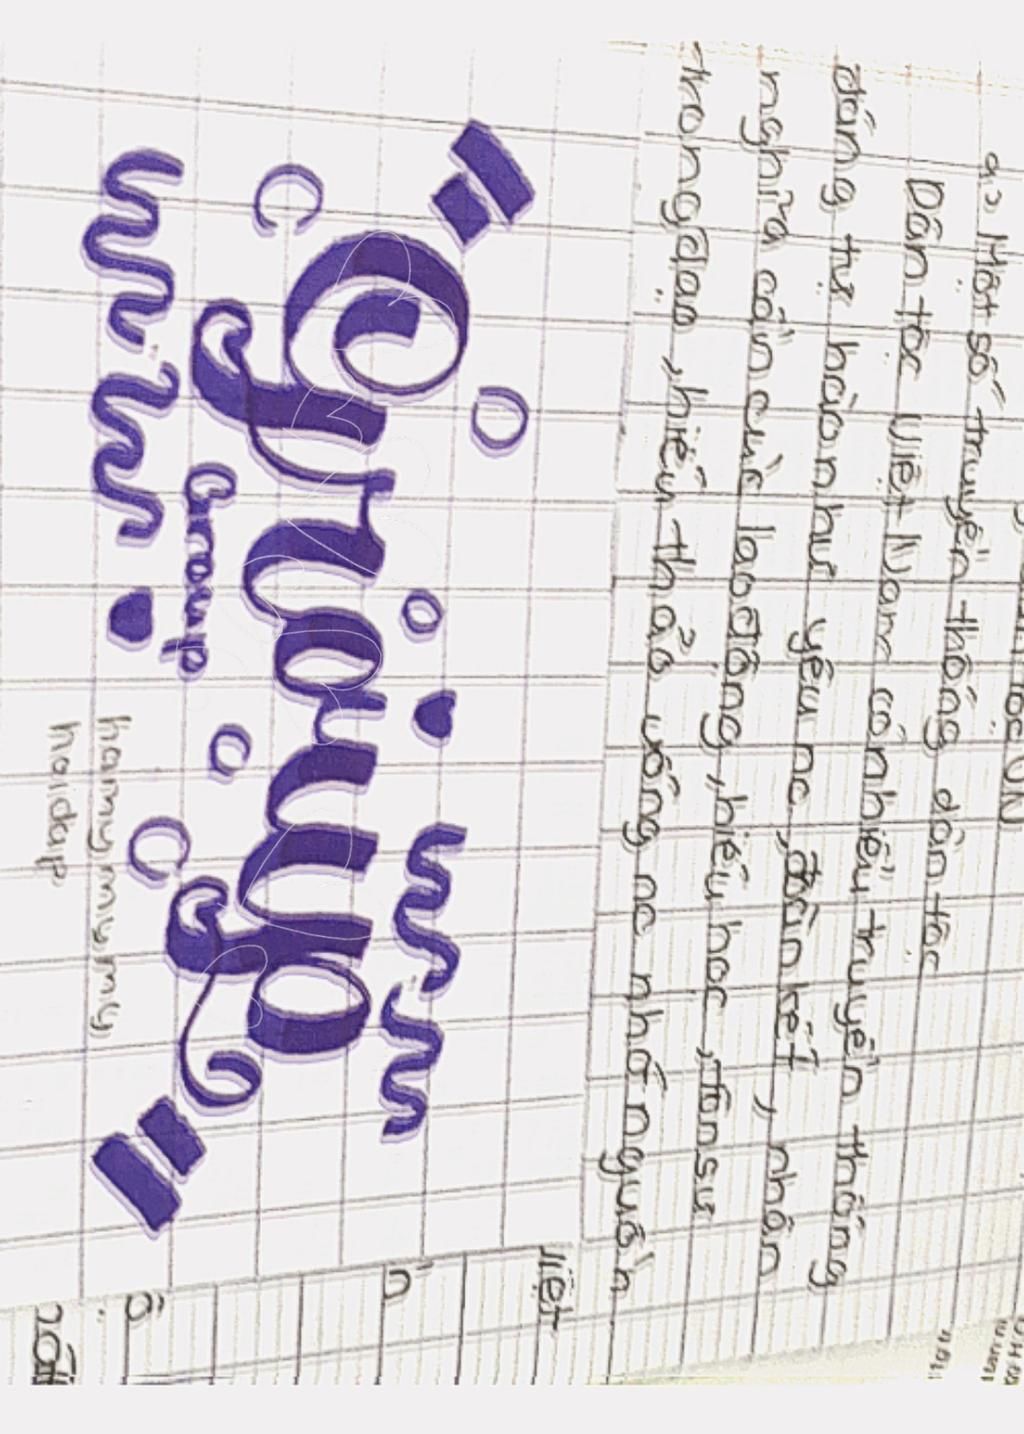 a> Một số truyền thống dân tộc
Dân tộc Việt Nam có nhiều truyền thống
đáng tự hào như yêu nc, đoàn kết, nhân
nghĩa cần cùc lao động, hiếu học, tôn sư
trọng đạo, hiếu thảo uống nc nhớ nguồn
Group
Group
hanmymymy
hoidap
Việt